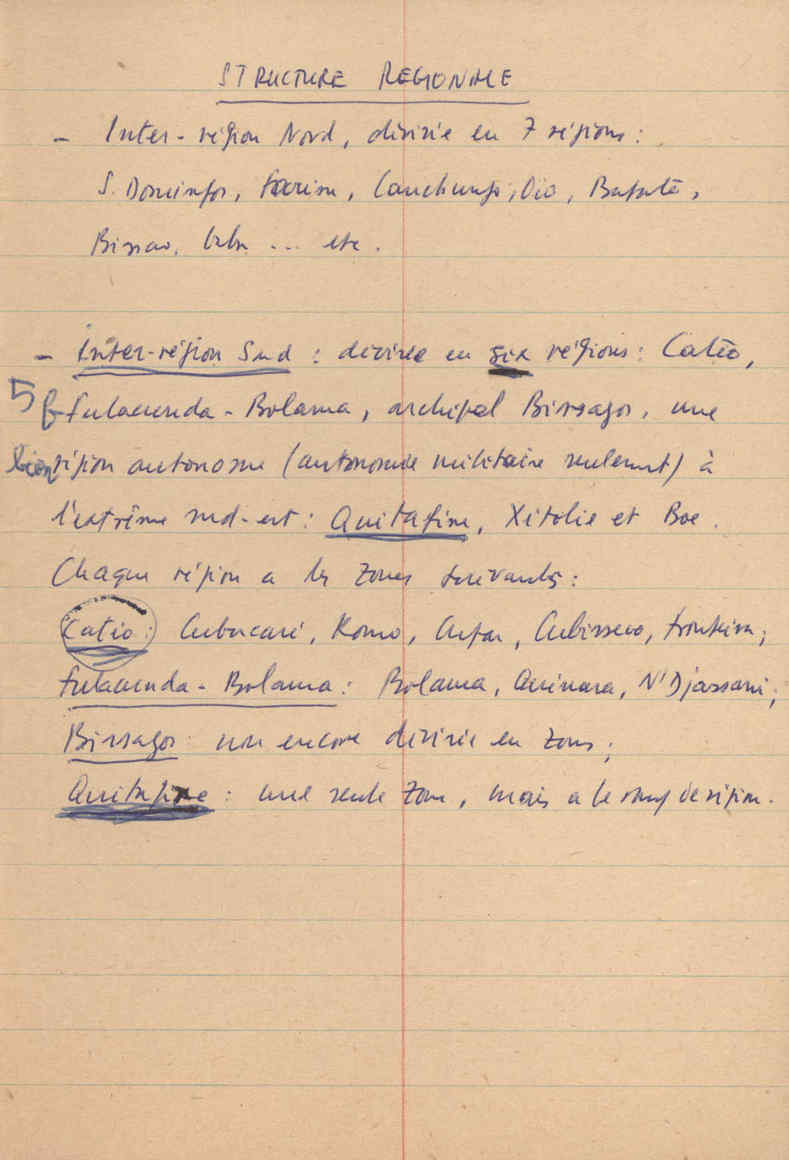 STRUCTURE REGIONALE
- Inter-région Nord, divisée en 7 régions :
S. Domingos, Farim, Canchungo, Oio, Bafatá,
Bissao, ... etc.
- Inter-région Sud : divisée en six régions : Catió,
5 Fulacunda - Bolama, archipel Bissagos, une
bien région autonome (autonomie militaire seulement) à
l'extrême sud-est : Quitafine, Xitolie et Boe.
Chaque région a les zones suivantes :
Catió : Cubucaré, Komo, Cufar, Cubisseco, Tombim ;
Fulacunda - Bolama : Bolama, Quinara, N'Djassani ;
Bissagos : non encore divisée en zones ;
Quitafine : une seule zone, mais a le rang de région.